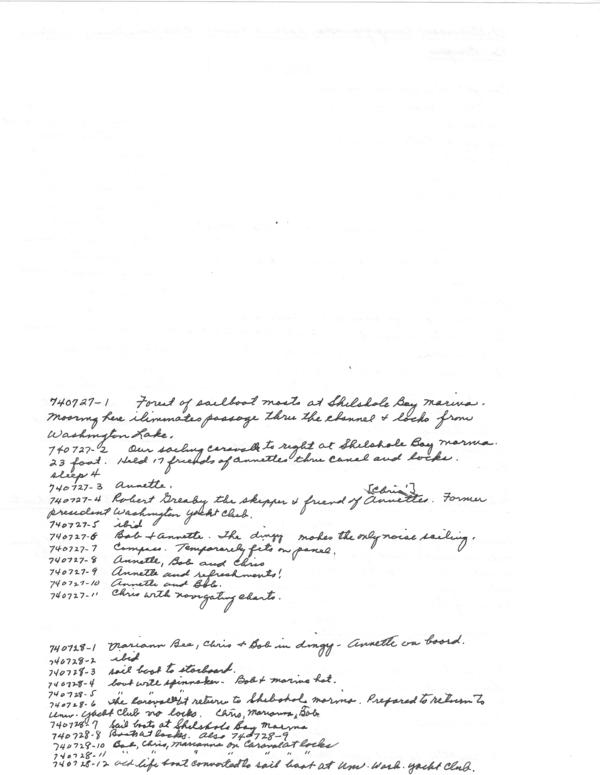 740727-1 Forest of sailboat masts at Shilshole Bay Marina.
Mooring here iliminates passage thru the channel & locks from
Washington Lake.
740727-2 Our sailing caravelle to right at Shilshole Bay marina.
23 foot. Held 17 friends of annettes thru canal and locks.
sleep 4
740727-3 Annette.
[Chris']
740727-4 Robert Greaby the skipper & friend of Annettes. Former
president Washington yacht Club.
740727-5 ibid
740727-6 Bob & Annette. The dingy makes the only noise sailing.
740727-7 Compass. Temporarely fits on panel.
740727-8 Annette, Bob and Chris
740727-9 Annette and refreshments!
740727-10 Annette and Bob.
740727-11 Chris with navigating charts.
740728-1 Mariann Bee, Chris & Bob in dingy - Annette on board.
740728-2 ibid
740728-3 sail boat to starboard.
740728-4 boat with spinnaker. Bob & marine hat.
740728-5 "
740728-6 The return to Shilshole marina. Prepared to return to
Univ. yacht Club via locks. Chris, Marianna, Bob
740728-7 Sail boats at Shilshole Bay Marina
740728-8 Boats at locks. Also 740728-9
740728-10 Bob, Chris, Marianna on Caravel at locks
740728-11 " " " " " "
740728-12 old life boat converted to sail boat at Univ. Wash. yacht Club.